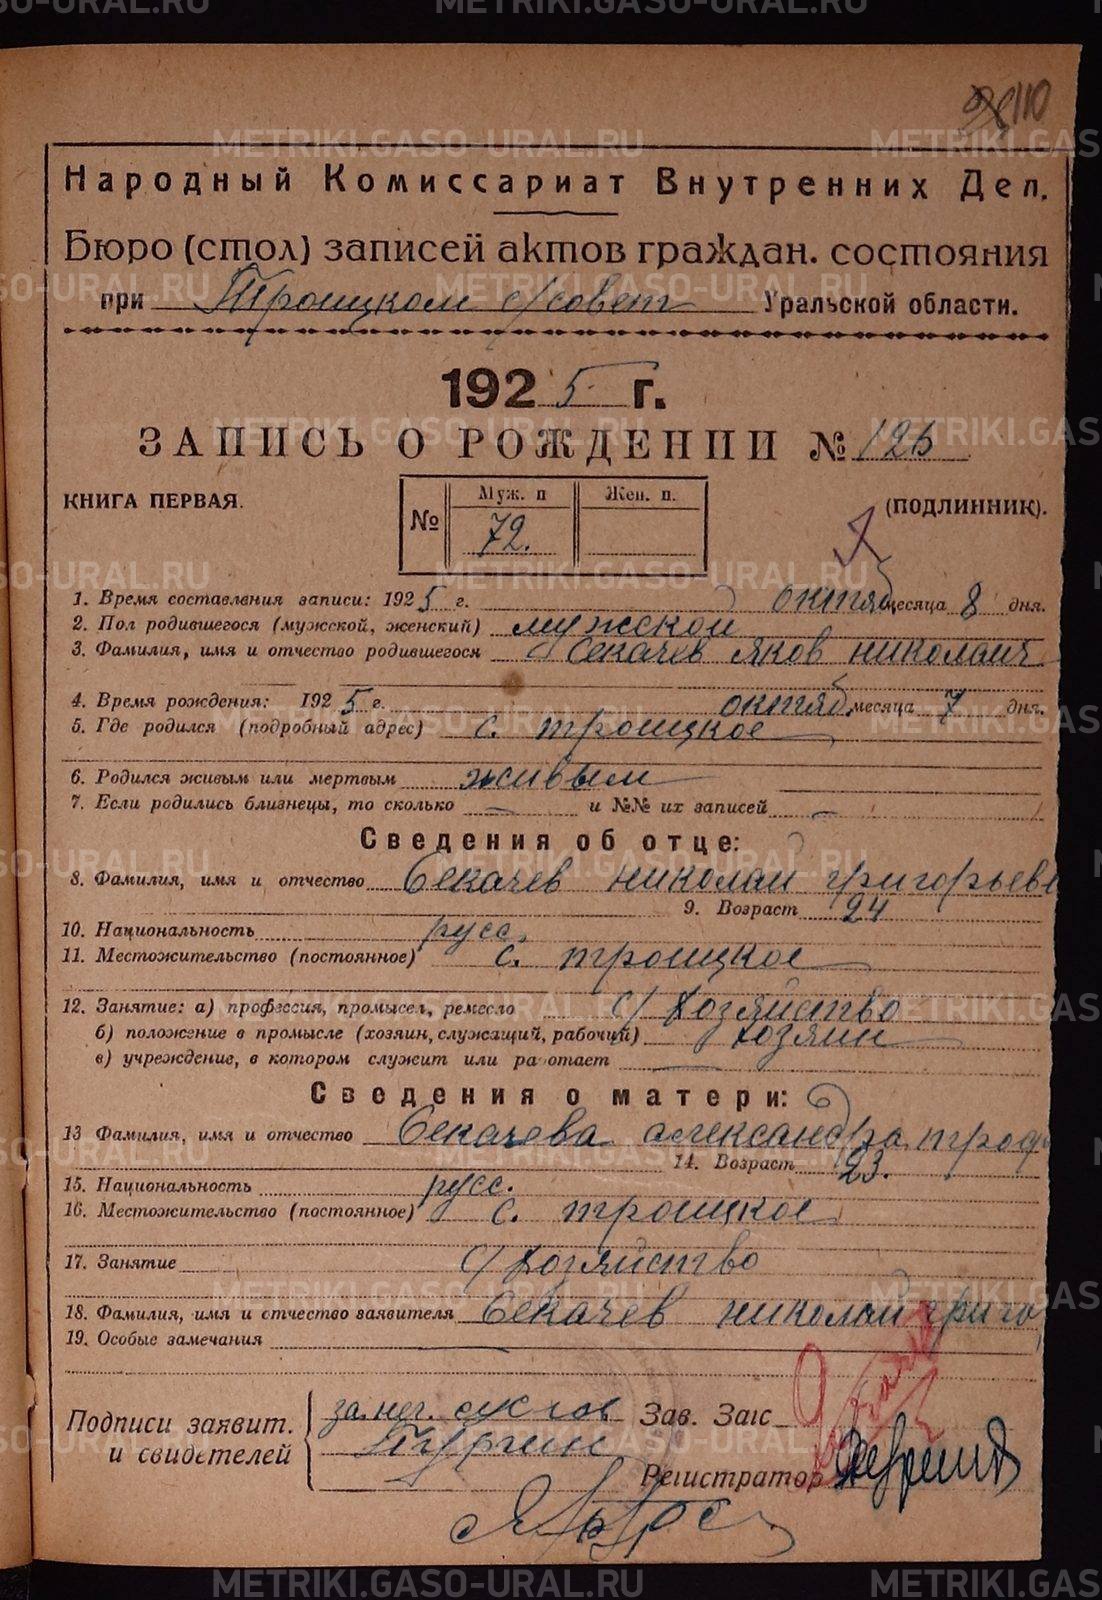 110
Народный Комиссариат Внутренних Дел.
Бюро (стол) записей актов граждан. состояния
при Троицком с/совет Уральской области.
1925 г.
ЗАПИСЬ О РОЖДЕНИИ № 126
КНИГА ПЕРВАЯ. (ПОДЛИННИК).
№ Муж. п Жен. п.
72.
1. Время составления записи: 1925 г. октяб месяца 8 дня.
2. Пол родившегося (мужской, женский) мужской
3. Фамилия, имя и отчество родившегося Секачев Яков Николаич
4. Время рождения: 1925 г. октяб. месяца 7 дня.
5. Где родился (подробный адрес) с. Троицкое
6. Родился живым или мертвым живым
7. Если родились близнецы, то сколько — и №№ их записей —
Сведения об отце:
8. Фамилия, имя и отчество Секачев Николай Григорьеви
9. Возраст 24
10. Национальность русс.
11. Местожительство (постоянное) с. Троицкое
12. Занятие: а) профессия, промысел, ремесло с/хозяйство
б) положение в промысле (хозяин, служащий, рабочий) хозяин
в) учреждение, в котором служит или работает —
Сведения о матери:
13 Фамилия, имя и отчество Секачева Александра Троф
14. Возраст 23.
15. Национальность русс.
16. Местожительство (постоянное) с. Троицкое
17. Занятие с/хозяйство
18. Фамилия, имя и отчество заявителя Секачев Николай Григо
19. Особые замечания
Подписи заявит. и свидетелей
Зав. Загс
Регистратор
METRIKI.GASO-URAL.RU